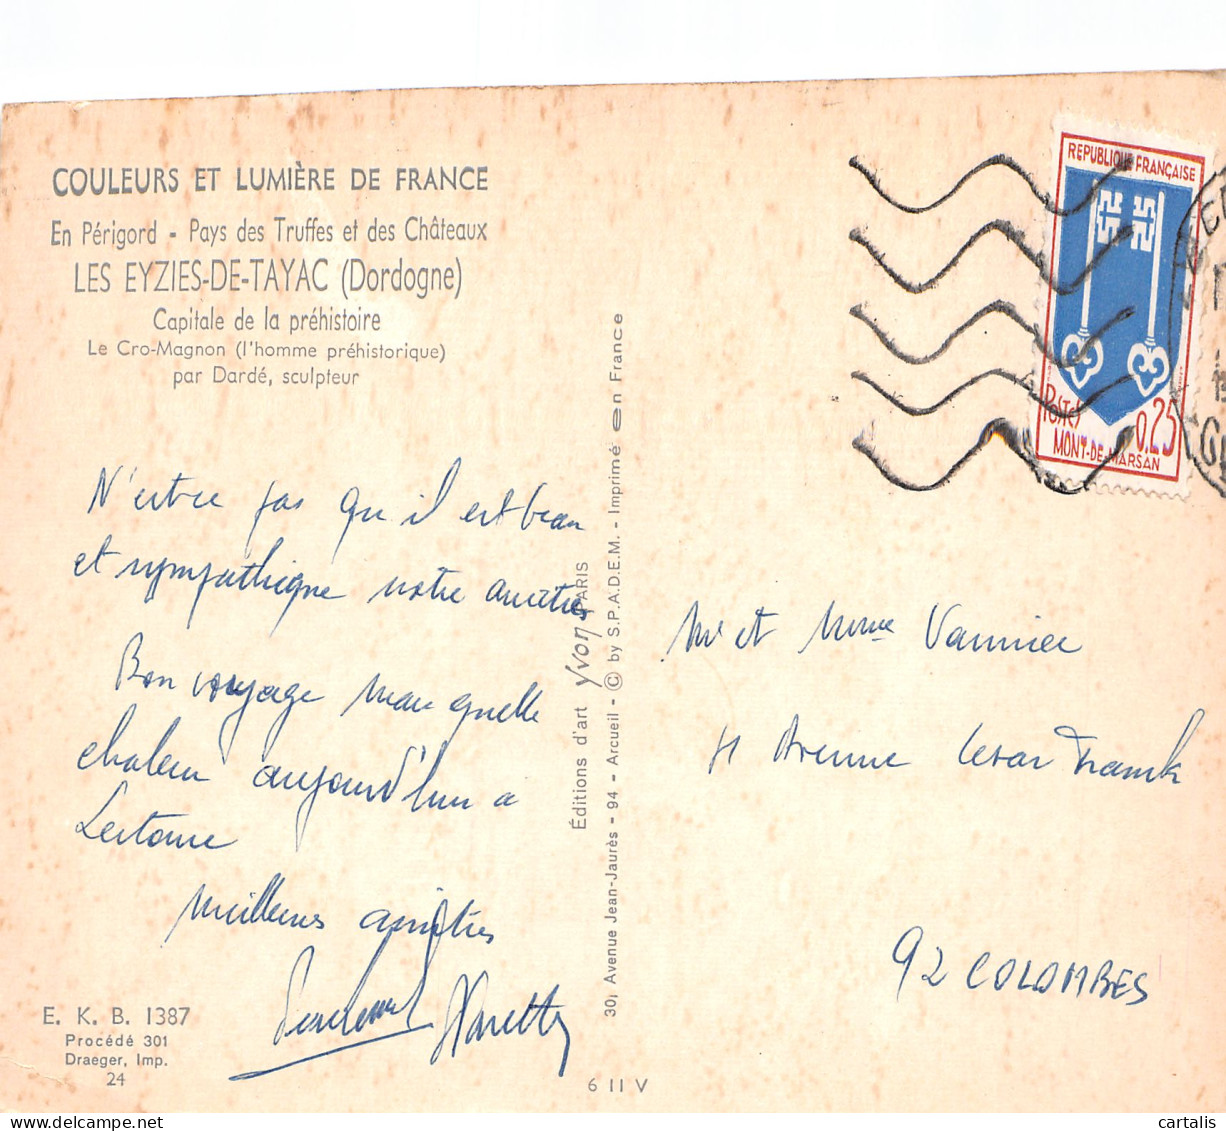 COULEURS ET LUMIÈRE DE FRANCE
En Périgord - Pays des Truffes et des Châteaux
LES EYZIES-DE-TAYAC (Dordogne)
Capitale de la préhistoire
Le Cro-Magnon (l'homme préhistorique)
par Dardé, sculpteur
N'est ce pas qu'il est beau
et sympathique notre ancêtre
Bon voyage mais quelle
chaleur aujourd'hui a
Meilleures amitiés
E. K. B. 1387
Procédé 301
Draeger, Imp.
24
Éditions d'art Yvon PARIS
30, Avenue Jean-Jaurès - 94 - Arcueil - © by S.P.A.D.E.M. - Imprimé en France
6 II V
REPUBLIQUE FRANÇAISE
Postes
0,25
MONT-DE-MARSAN
Mr et Mme Vannier
11 Avenue Cesar Franck
92 COLOMBES
cartalis